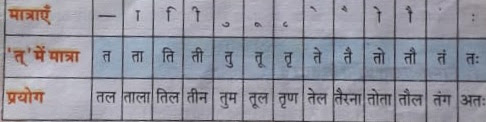 मात्राएँ — ा ि ी ु ू ृ े ै ो ौ ं ः
'त्' में मात्रा त ता ति ती तु तू तृ ते तै तो तौ तं तः
प्रयोग तल ताला तिल तीन तुम तूल तृण तेल तैरना तोता तौल तंग अतः